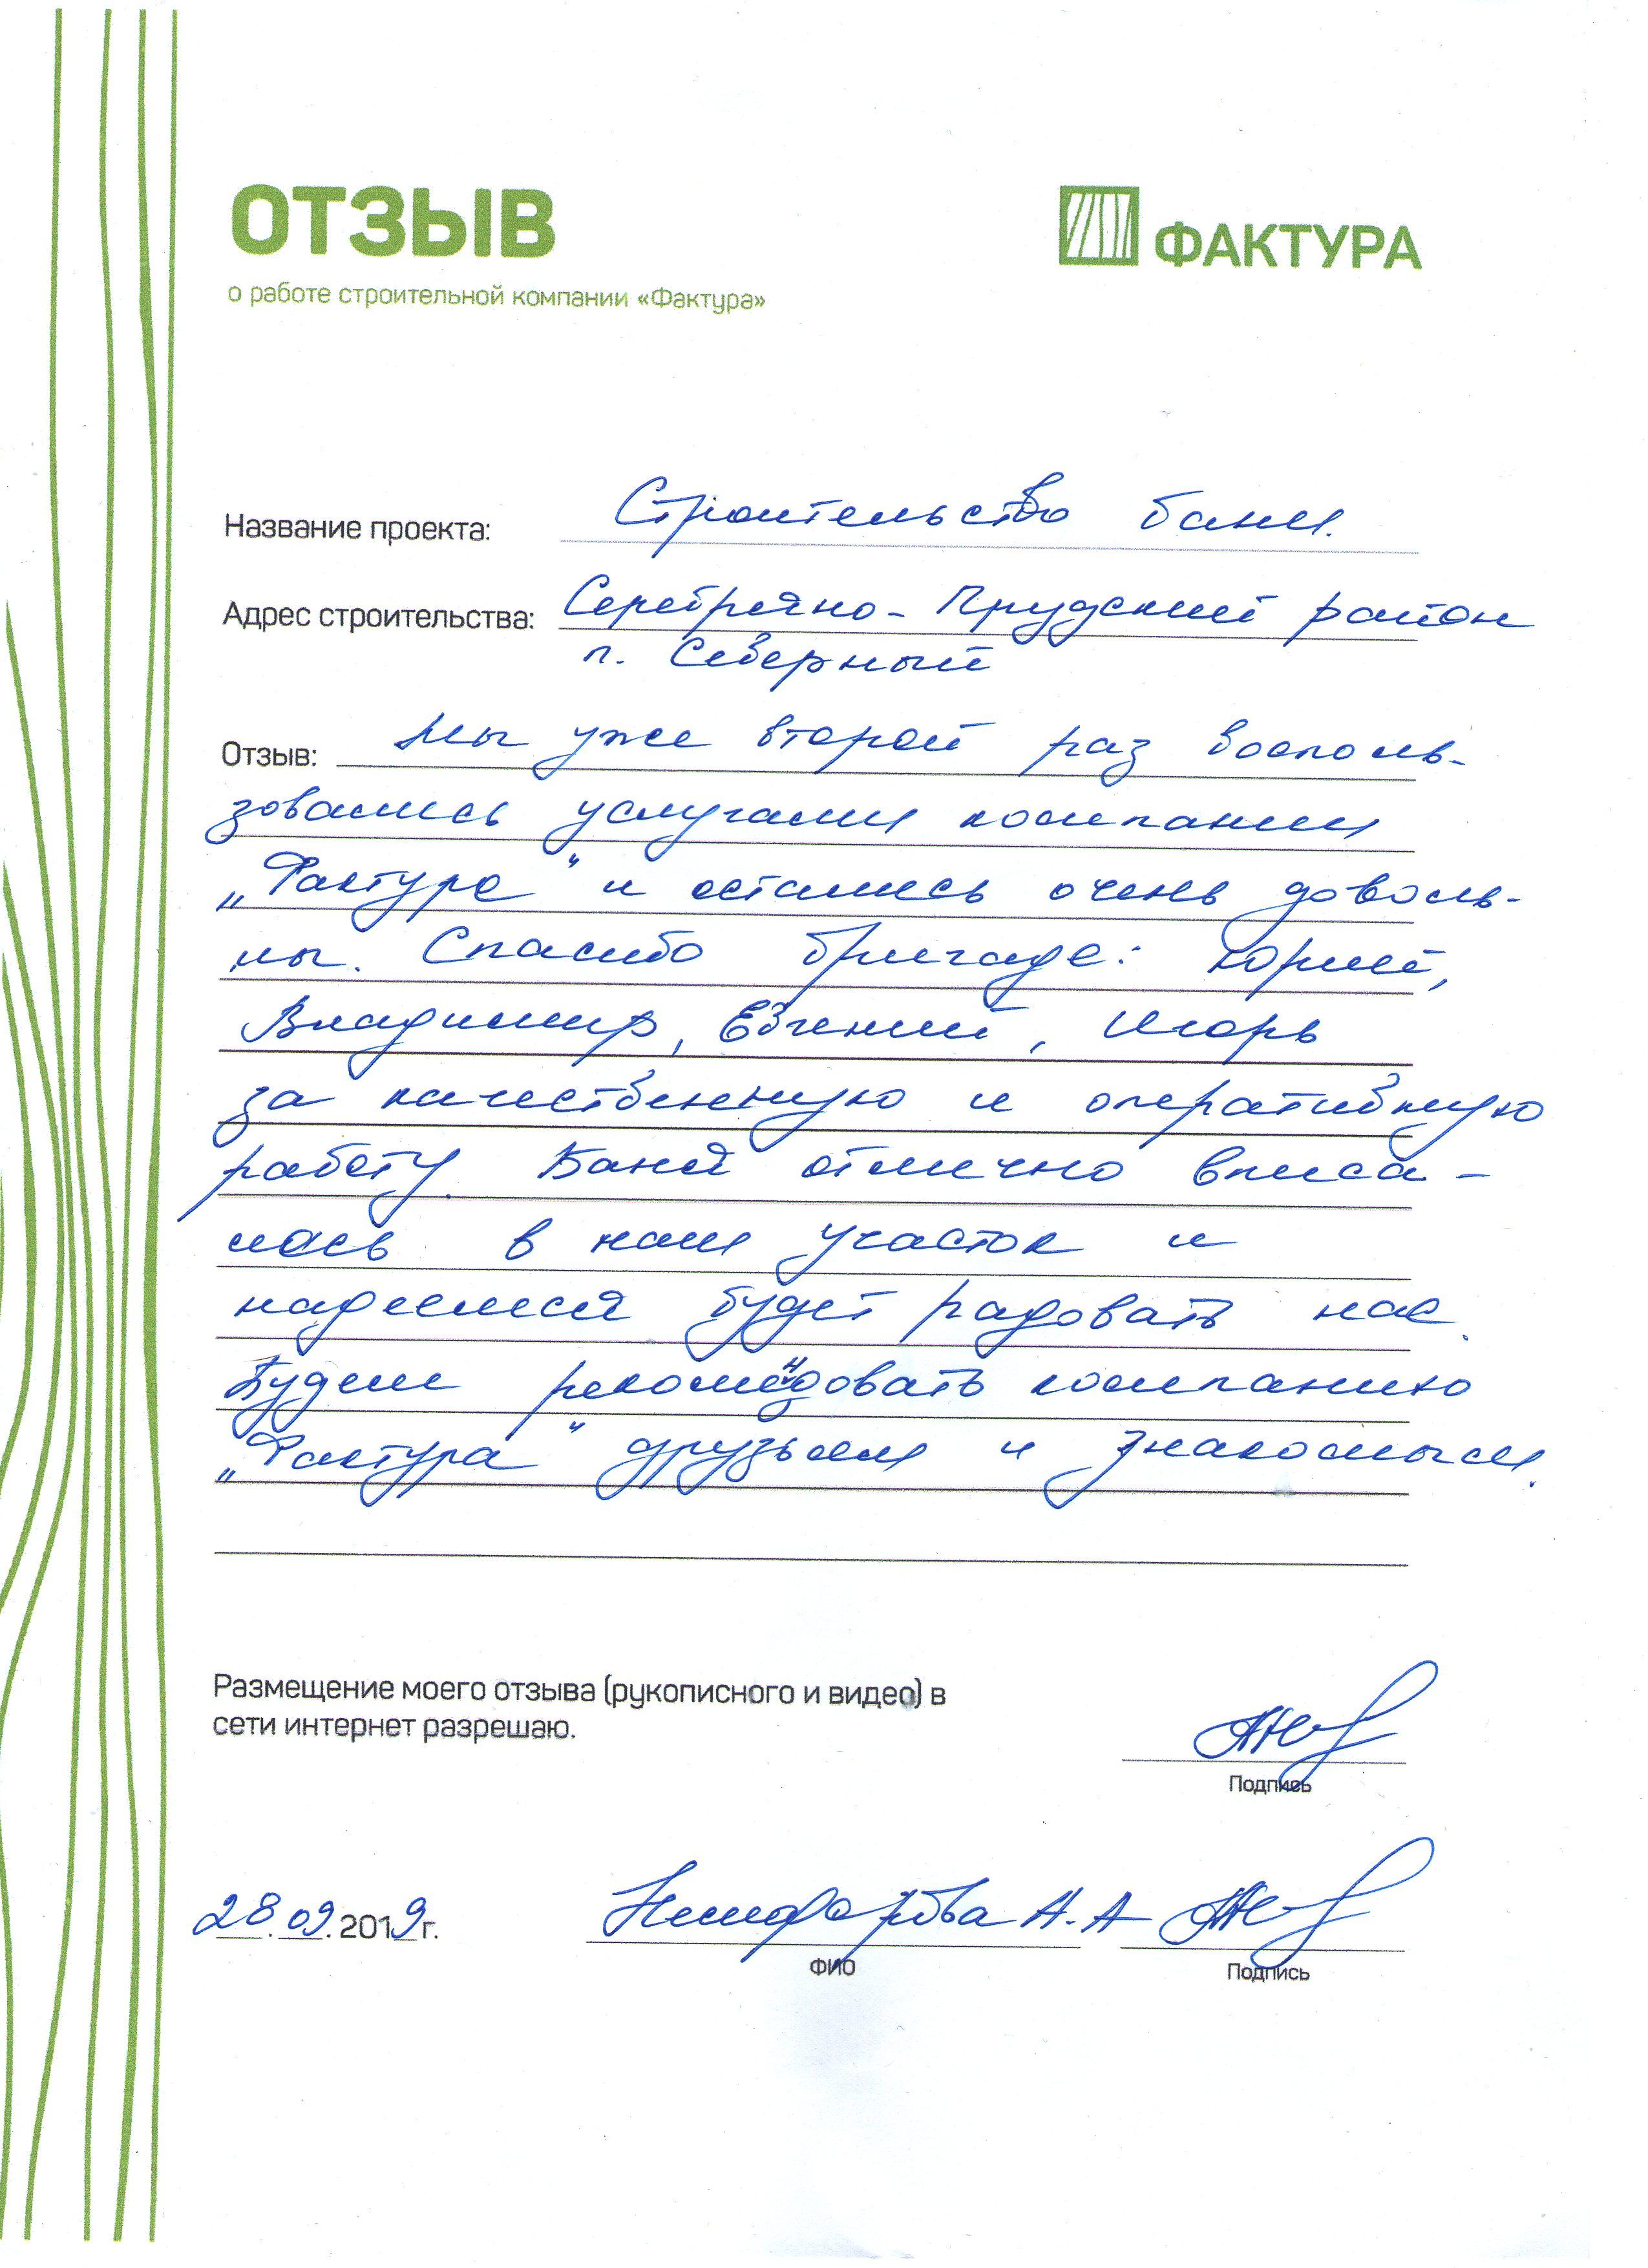 ОТЗЫВ
ФАКТУРА
о работе строительной компании «Фактура»
Название проекта: Строительство бани.
Адрес строительства: Серебряно-Прудский район
п. Северный
Отзыв: Мы уже второй раз восполь-
зовались услугами компании
„Фактура" и остались очень доволь-
ны. Спасибо бригаде: Юрий,
Владимир, Евгений, Игорь
за качественную и оперативную
работу. Баня отлично вписа-
лась в наш участок и
надеемся будет радовать нас.
Будем рекомендовать компанию
„Фактура" друзьям и знакомым.
Размещение моего отзыва (рукописного и видео) в
сети интернет разрешаю.
Подпись
28.09.2019г. А.А
ФИО Подпись